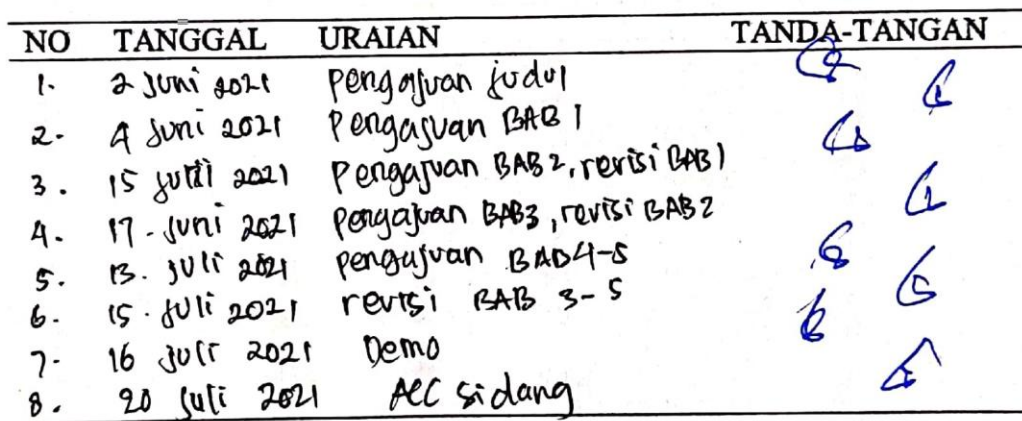 NO TANGGAL URAIAN TANDA-TANGAN
1. 2 Juni 2021 pengajuan judul
2. 4 Juni 2021 Pengajuan BAB 1
3. 15 2021 Pengajuan BAB 2, revisi BAB 1
4. 17. Juni 2021 pengajuan BAB3, revisi BAB 2
5. 13. Juli 2021 pengajuan BAB4-5
6. 15. Juli 2021 revisi BAB 3-5
7. 16 Juli 2021 Demo
8. 20 Juli 2021 ACC sidang